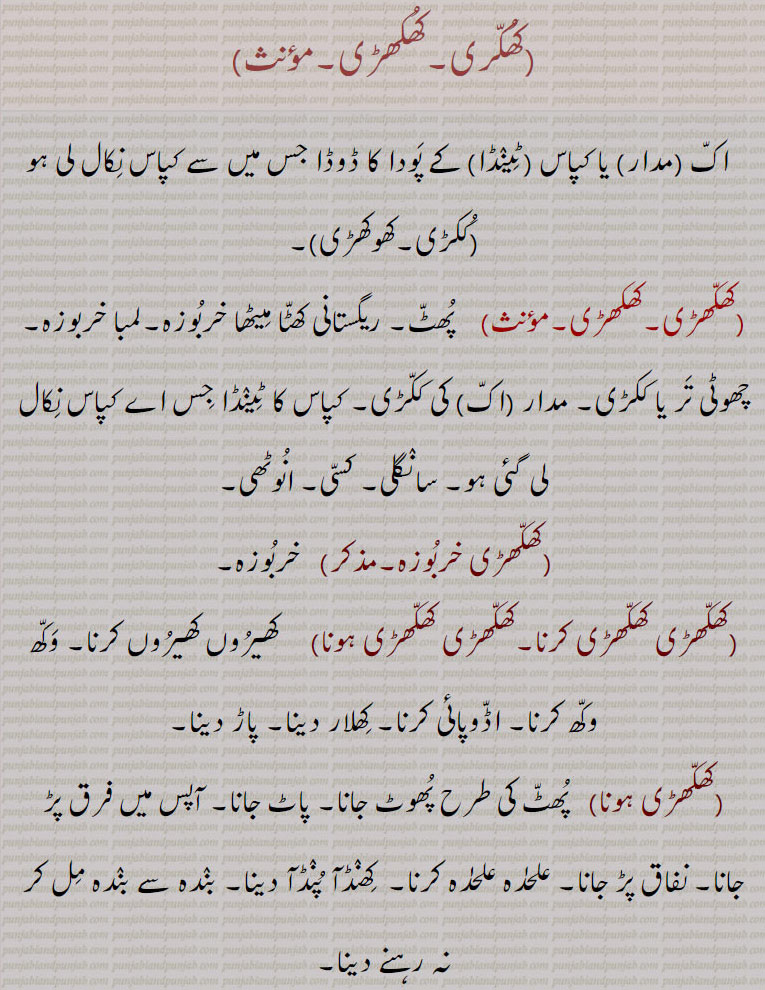 (کھُکّری۔ کھُکھڑی۔ مؤنث)
اکّ (مدار) یا کپاس (ٹِینْڈا) کے پَودا کا ڈوڈا جس میں سے کپاس نِکال لی ہو
(کُکڑی۔کھوکھڑی)۔
(کھکّھڑی۔کھکھڑی۔مؤنث) پُھٹّ۔ ریگستانی کھٹّا مِیٹھا خربُوزہ۔لمبا خربوزہ۔
چھوٹی تَر یا ککڑی۔ مدار (اکّ) کی ککّڑی۔ کپاس کا ٹِینْڈا جِس اے کپاس نِکال
لی گئی ہو۔ سانْگلی۔ کسّی۔ انُوٹھی۔
(کھکّھڑی خربُوزہ۔مذکر) خربُوزہ۔
(کھکّھڑی کھکّھڑی کرنا۔کھکّھڑی کھکّھڑی ہونا) کھیرُوں کھیرُوں کرنا۔ وَکّھ
وکّھ کرنا۔ اڈّوپائی کرنا۔ کِھلار دینا۔ پاڑ دینا۔
(کھکّھڑی ہونا) پُھٹّ کی طرح پُھوٹ جانا۔ پاٹ جانا۔ آپس میں فرق پڑ
جانا۔ نفاق پڑ جانا۔ علحٰدہ علحٰدہ کرنا۔ کِھنْڈآ پُنْڈآ دینا۔ بنْدہ سے بنْدہ مِل کر
نہ رہنے دینا۔